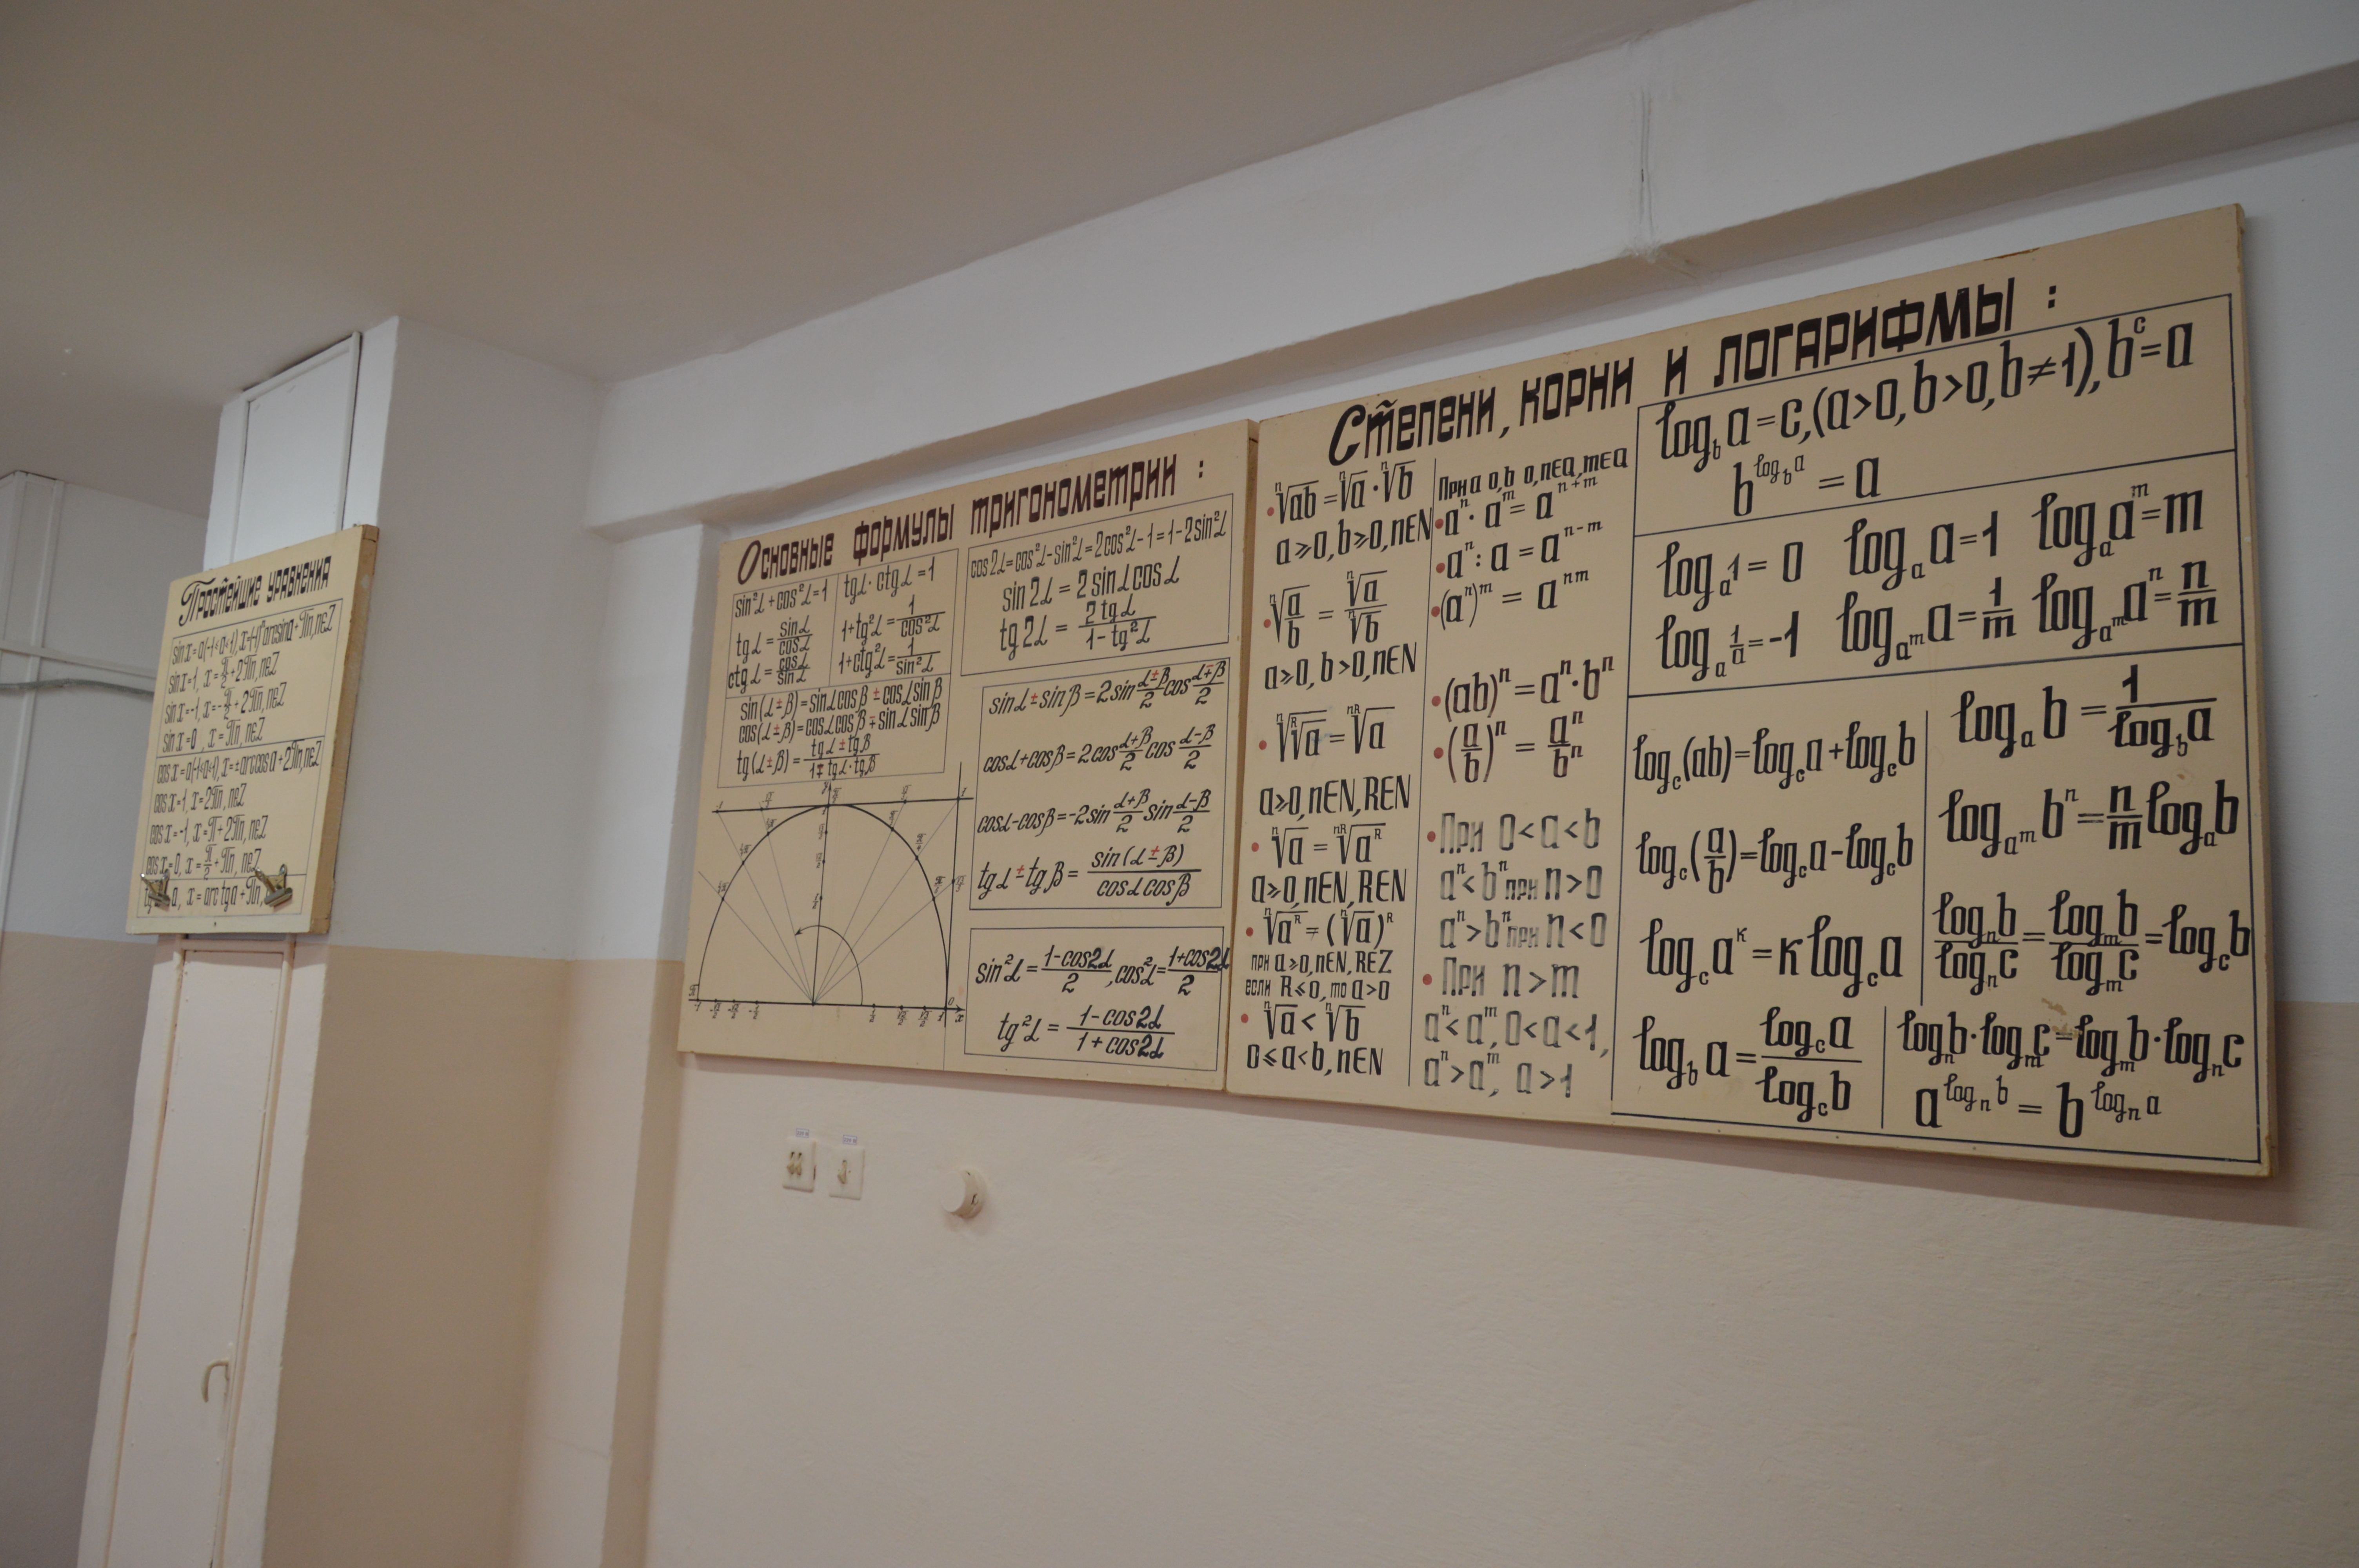 Простейшие уравнения
sin x = a(-1≤a≤1), x=(-1)ⁿ arcsin a + πn, n∈Z
sin x=1, x = π/2 + 2πn, n∈Z
sin x=-1, x=-π/2 + 2πn, n∈Z
sin x=0, x = πn, n∈Z
cos x = a(-1≤a≤1), x=± arccos a + 2πn, n∈Z
cos x=1, x=2πn, n∈Z
cos x=-1, x=π+2πn, n∈Z
cos x=0, x=π/2+πn, n∈Z
a, x = arctg a + πn,
Основные формулы тригонометрии :
sin²α + cos²α = 1
tg α = sin α / cos α
ctg α = cos α / sin α
tg α · ctg α = 1
1+tg²α = 1/cos²α
1+ctg²α = 1/sin²α
sin(α±β) = sinα cosβ ± cosα sinβ
cos(α±β) = cosα cosβ ∓ sinα sinβ
tg(α±β) = (tgα ± tgβ)/(1∓tgα·tgβ)
cos2α=cos²α-sin²α=2cos²α-1=1-2sin²α
sin 2α = 2 sinα cosα
tg 2α = 2 tg α / (1 - tg²α)
sinα ± sinβ = 2 sin (α±β)/2 cos (α∓β)/2
cosα + cosβ = 2cos (α+β)/2 cos (α-β)/2
cosα - cosβ = -2sin (α+β)/2 sin (α-β)/2
tgα ± tgβ = sin(α±β) / (cosα cosβ)
sin²α = (1-cos2α)/2, cos²α = (1+cos2α)/2
tg²α = (1-cos2α)/(1+cos2α)
Степени, корни и логарифмы :
• ⁿ√ab = ⁿ√a · ⁿ√b
a≥0, b≥0, n∈N
• ⁿ√(a/b) = ⁿ√a / ⁿ√b
a≥0, b>0, n∈N
• ⁿ√ᴿ√a = ⁿᴿ√a
a≥0, n∈N, R∈N
• ⁿ√a = ⁿᴿ√aᴿ
a≥0, n∈N, R∈N
• ⁿ√aᴿ = (ⁿ√a)ᴿ
при a≥0, n∈N, R∈Z
если R≤0, то a>0
• ⁿ√a < ⁿ√b
0≤a<b, n∈N
При a 0, b 0, n∈Q, m∈Q
• aⁿ · aᵐ = aⁿ⁺ᵐ
• aⁿ : a = aⁿ⁻ᵐ
• (aⁿ)ᵐ = aⁿᵐ
• (ab)ⁿ = aⁿ·bⁿ
• (a/b)ⁿ = aⁿ/bⁿ
• При 0<a<b
aⁿ<bⁿ при n>0
aⁿ>bⁿ при n<0
• При n>m
aⁿ<aᵐ, 0<a<1,
aⁿ>aᵐ, a>1
log_b a = c, (a>0, b>0, b≠1), bᶜ=a
b^(log_b a) = a
log_a 1 = 0 log_a a = 1 log_a aᵐ = m
log_a 1/a = -1 log_(aᵐ) a = 1/m log_(aᵐ) aⁿ = n/m
log_c(ab) = log_c a + log_c b
log_c(a/b) = log_c a - log_c b
log_c aᴷ = K log_c a
log_b a = log_c a / log_c b
log_a b = 1 / log_b a
log_(aᵐ) bⁿ = n/m log_a b
log_n b / log_n c = log_m b / log_m c = log_c b
log_n b · log_m c = log_m b · log_n c
a^(log_n b) = b^(log_n a)